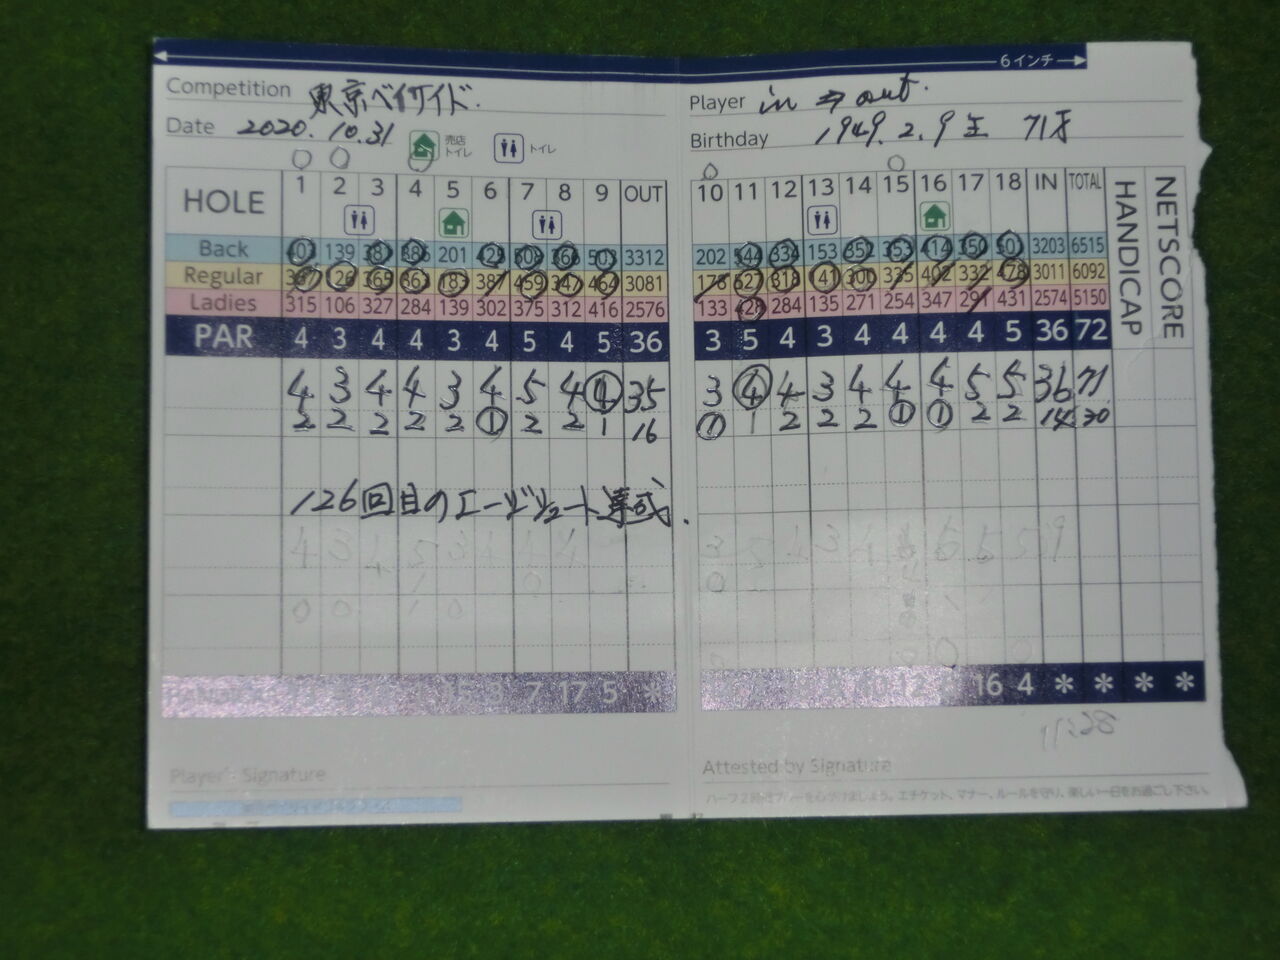 6インチ
Competition 東京ベイサイド.
Player in ⇒ out.
Date 2020.10.31 売店 トイレ トイレ
Birthday 1949.2.9生 71才
HOLE 1 2 3 4 5 6 7 8 9 OUT 10 11 12 13 14 15 16 17 18 IN TOTAL HANDICAP NETSCORE
Back 403 139 387 386 201 429 508 366 503 3312 202 544 334 153 352 353 414 350 501 3203 6515
Regular 367 126 365 363 183 387 459 347 464 3081 178 527 318 141 300 335 402 332 478 3011 6092
Ladies 315 106 327 284 139 302 375 312 416 2576 133 428 284 135 271 254 347 291 431 2574 5150
PAR 4 3 4 4 3 4 5 4 5 36 3 5 4 3 4 4 4 4 5 36 72
4 3 4 4 3 4 5 4 4 35 3 4 4 3 4 4 4 5 5 36 71
2 2 2 2 2 1 2 2 1 16 1 1 2 2 2 1 1 2 2 14 30
126回目のエージシュート達成.
7 17 5 * 12 16 4 * * * *
11:28
Player's Signature
Attested by Signature
ハーフ2時間プレーを心がけましょう。エチケット、マナー、ルールを守り、楽しい一日をお過ごし下さい。